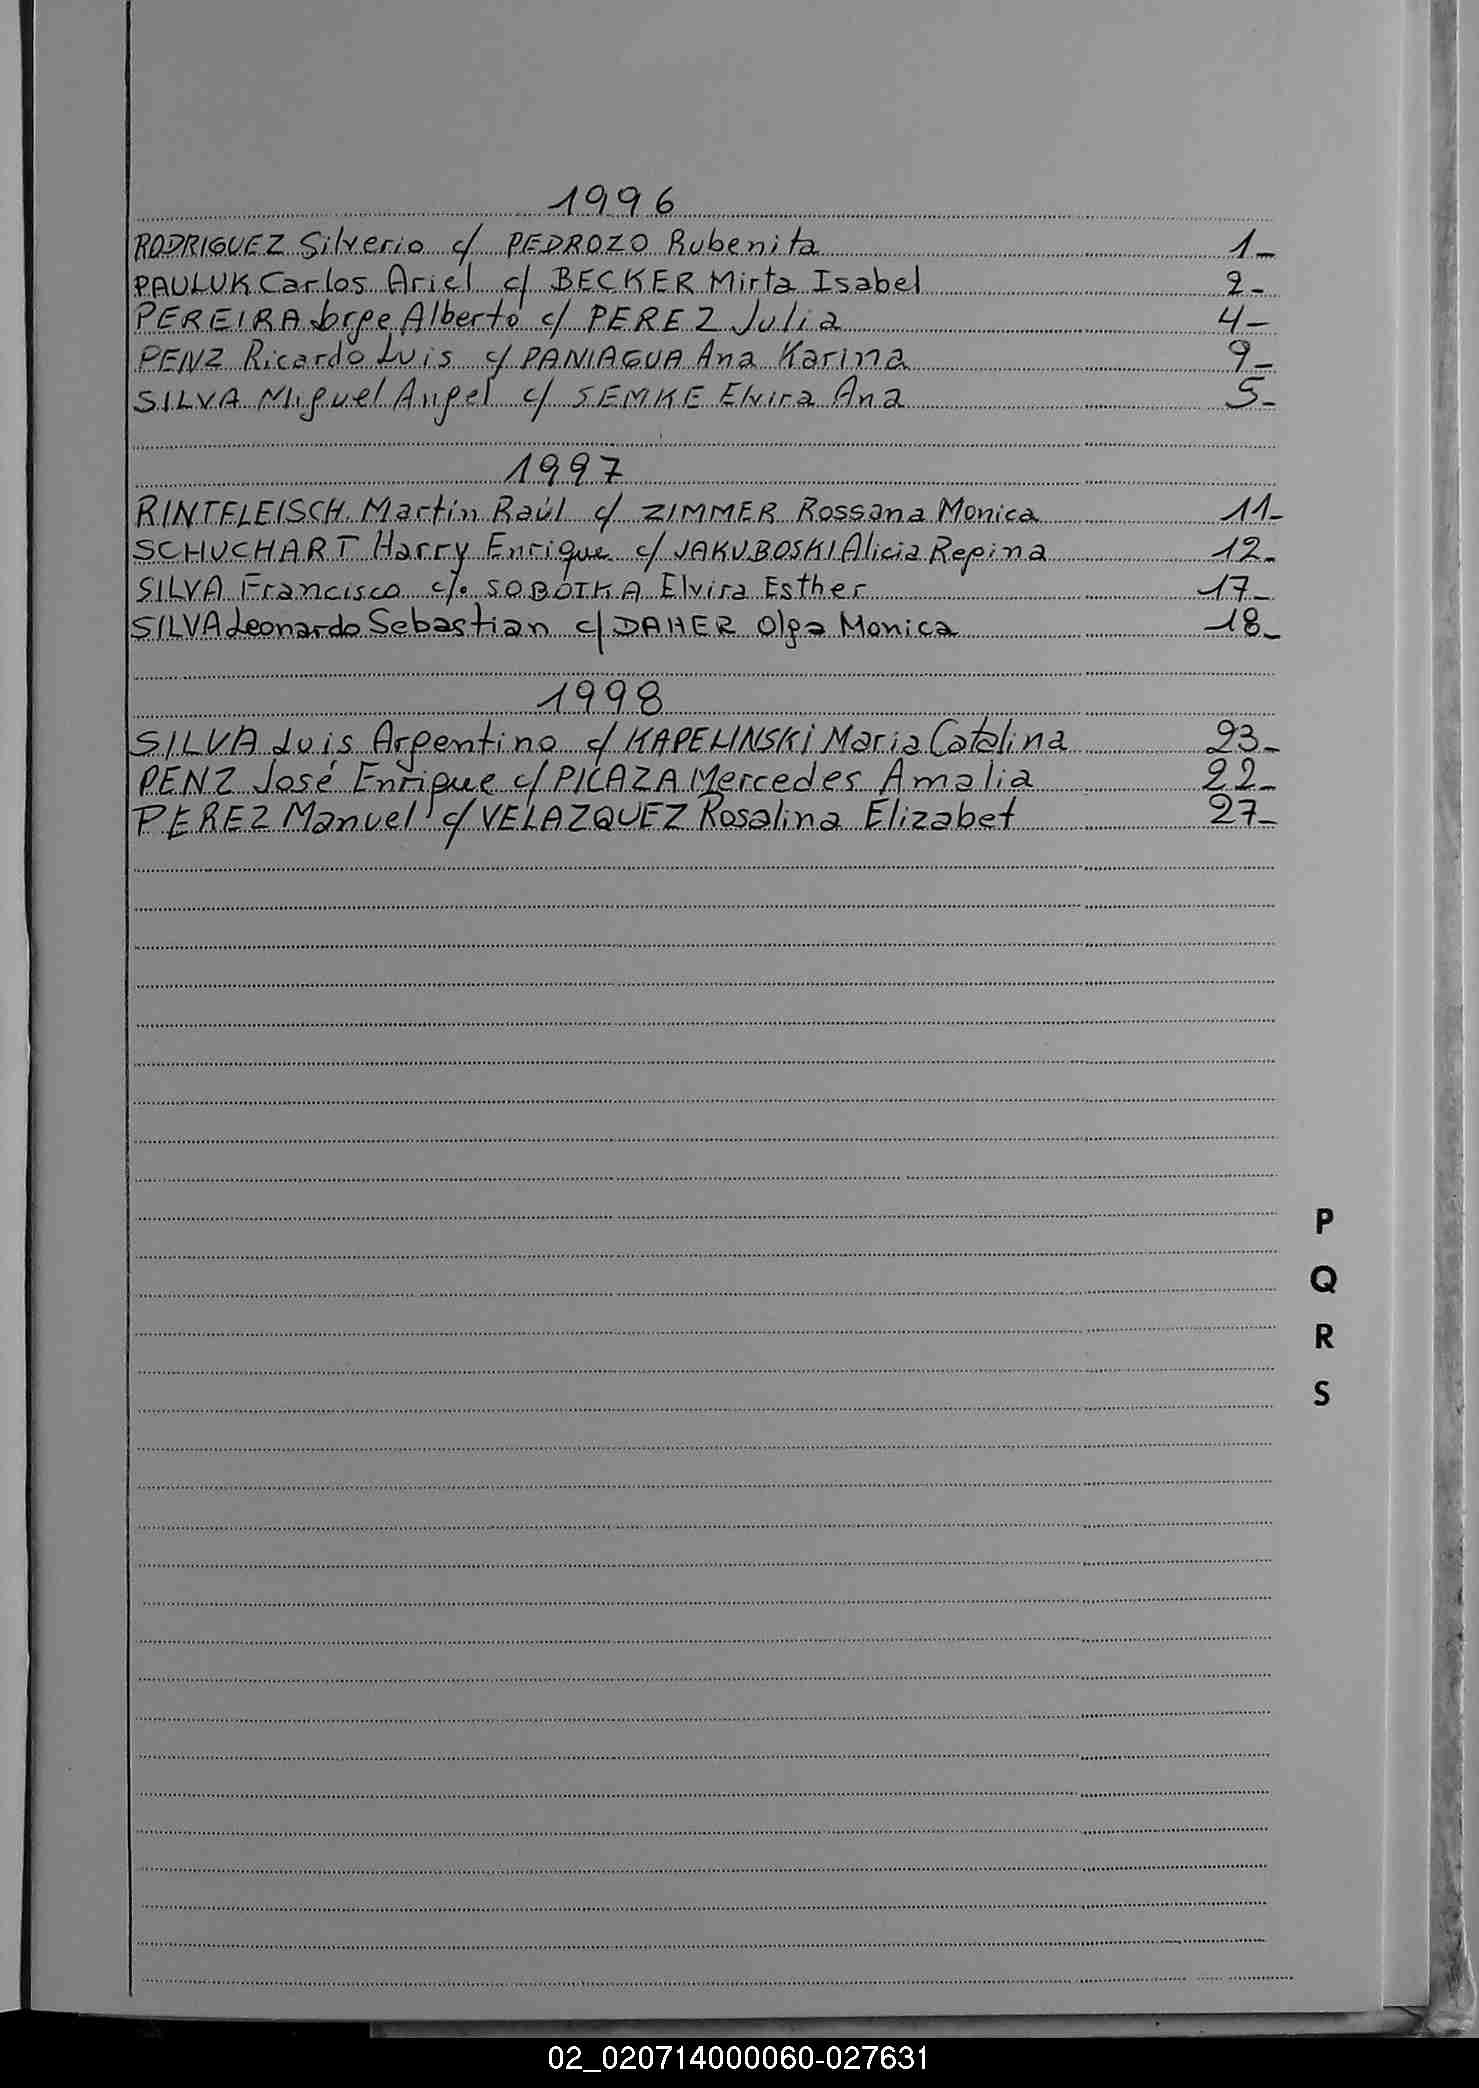 1996
RODRIGUEZ Silverio c/ PEDROZO Rubenita 1-
PAULUK Carlos Ariel c/ BECKER Mirta Isabel 2-
PEREIRA Jorge Alberto c/ PEREZ Julia 4-
PENZ Ricardo Luis c/ PANIAGUA Ana Karina 9-
SILVA Miguel Angel c/ SEMKE Elvira Ana 5-
1997
RINTFLEISCH Martin Raúl c/ ZIMMER Rossana Monica 11-
SCHUCHART Harry Enrique c/ JAKUBOSKI Alicia Regina 12-
SILVA Francisco c/. SOBOTKA Elvira Esther 17-
SILVA Leonardo Sebastian c/ DAHER Olga Monica 18-
1998
SILVA Luis Argentino c/ KAPELINSKI Maria Catalina 23-
PENZ José Enrique c/ PICAZA Mercedes Amalia 22-
PEREZ Manuel c/ VELAZQUEZ Rosalina Elizabet 27-
P
Q
R
S
02_020714000060-027631